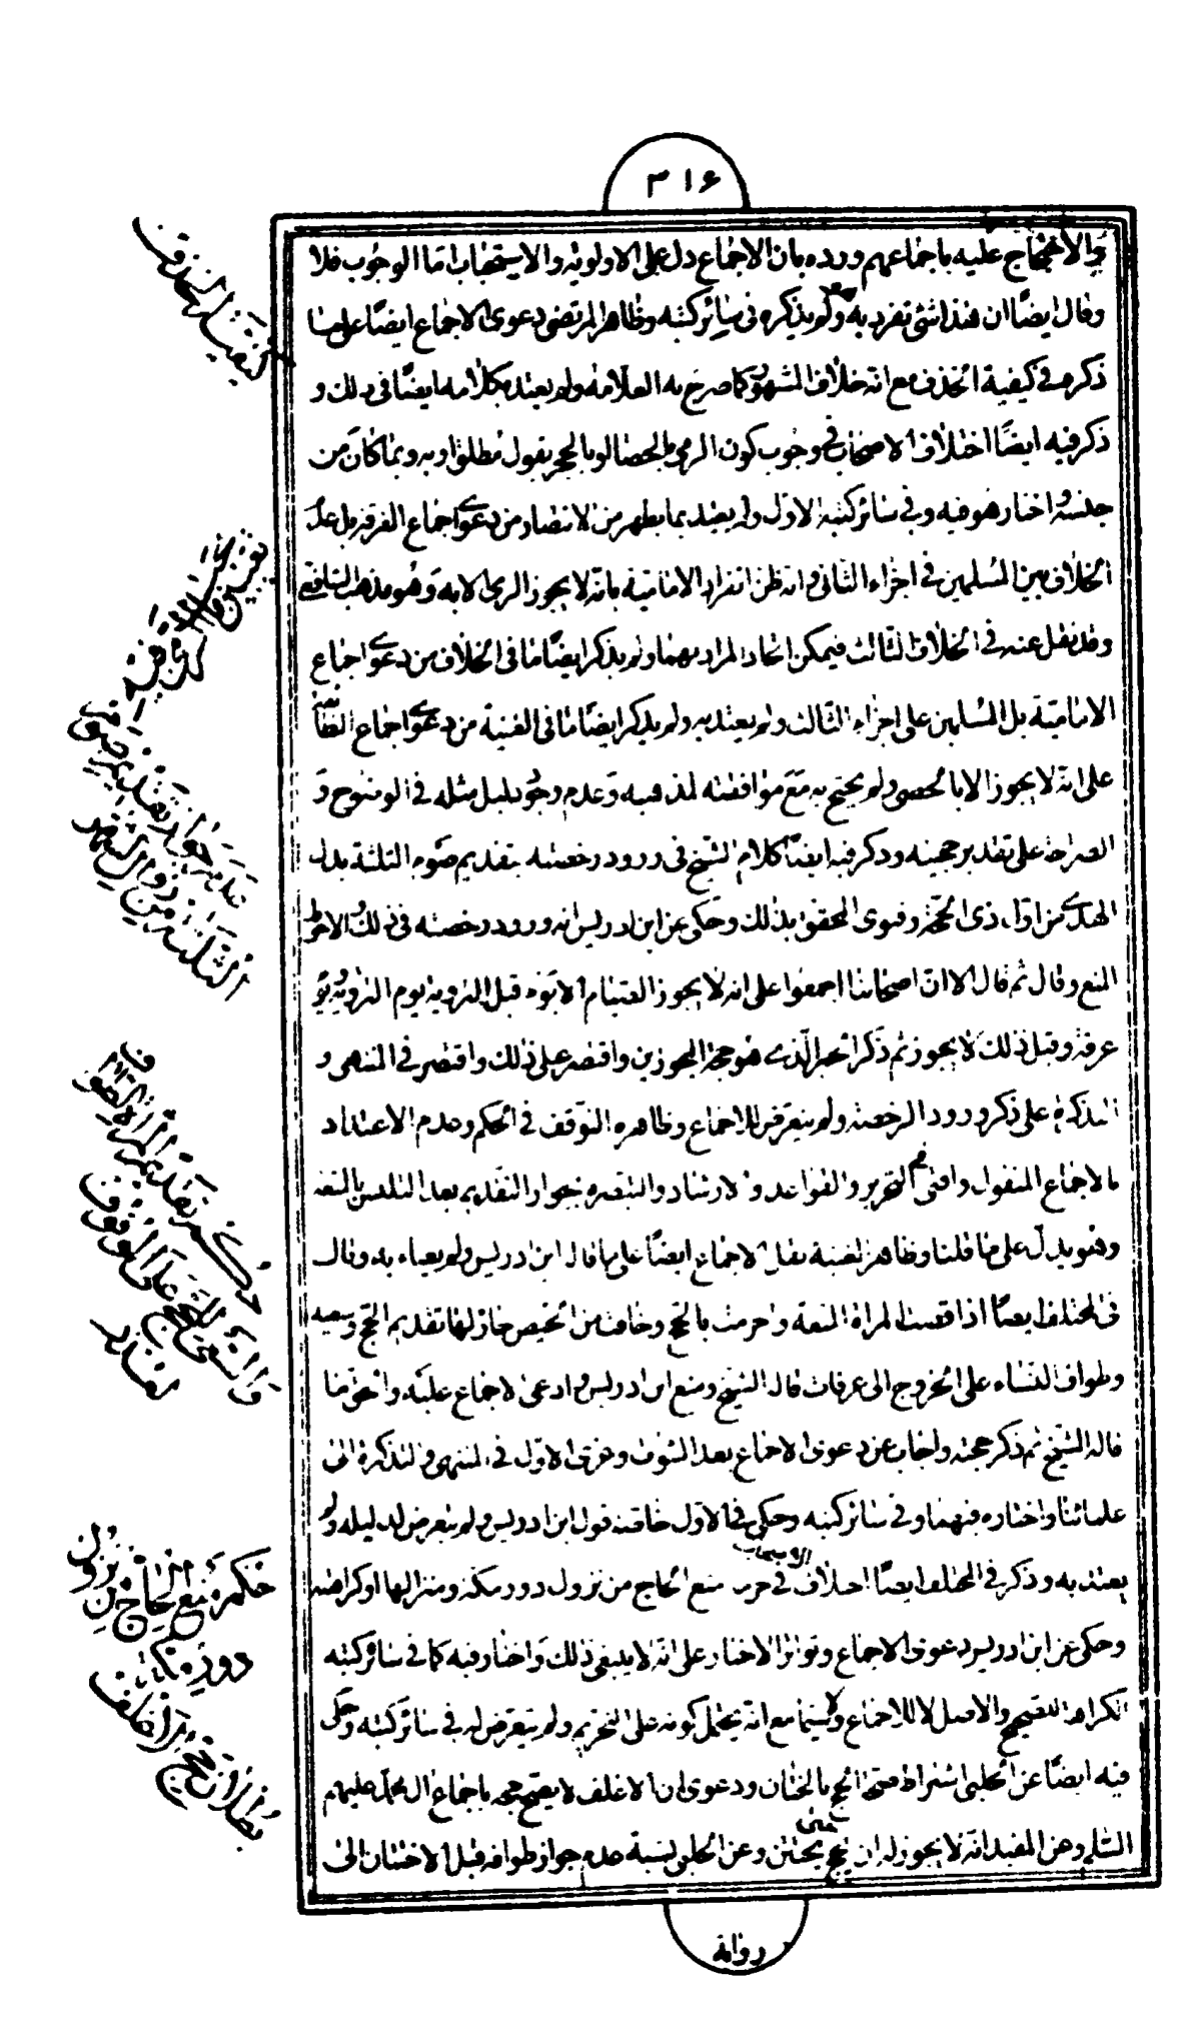 ٣١۶
والاحتجاج عليه باجماعهم ورده بان الاجماع دل على الاولوية والاستحباب اما الوجوب فلا
وقال ايضا ان هذا شئ تفرد به ولم يذكره فى ساير كتبه وظاهر المرتضى دعوى الاجماع ايضا على ما
ذكره فى كيفية الخذف مع انه خلاف المشهور كما صرح به العلامة ولم يعتد بكلامه ايضا فى ذلك و
ذكر فيه ايضا اختلاف الاصحاب فى وجوب كون الرمى بالحصا او بالحجر بقول مطلق او به وبما كان من
جنسه واختار هو فيه وفى سائر كتبه الاول ولم يعتد بما يظهر من الانتصار من دعوى اجماع الفرقة بل عدم
الخلاف بين المسلمين فى اجزاء الثانى وانه ظن انفراد الامامية بانه لا يجوز الرمى الا به وهو مذهب الشافعى
وقد نقل عنه فى الخلاف الثالث فيمكن اتحاد المراد بهما ولم يذكر ايضا ما فى الخلاف من دعوى اجماع
الامامية بل المسلمين على اجزاء الثالث ولم يعتد به ولم يذكر ايضا ما فى الغنية من دعوى اجماع الطائفة
على انه لا يجوز الا بالحصى ولم يحتج به مع موافقته لمذهبه وعدم وجود دليل مثله فى الوضوح و
الصراحة على تقدير حجيته وذكر فيه ايضا كلام الشيخ فى ورود رخصته بتقديم صوم الثلثة بدل
الهدى من اول ذى الحجة وفتوى المحقق بذلك وحكى عن ابن ادريس انه ورود رخصته فى ذلك والاحوط
المنع وقال ثم قال الا ان اصحابنا اجمعوا على انه لا يجوز الصيام الا يوم قبل التروية يوم التروية يوم
عرفة وقبل ذلك لا يجوز ثم ذكر الخبر الذى هو حجة المجوزين واقتصر على ذلك واقتصر فى المنتهى و
التذكرة على ذكر ورود الرخصة ولم يتعرض للاجماع وظاهره التوقف فى الحكم وعدم الاعتداد
بالاجماع المنقول وافتى فى التحرير والقواعد والارشاد والتبصرة بجواز التقديم بعد التلبس بالمتعة
وهو يدل على ما قلنا وظاهر الغنية نقل الاجماع ايضا على ما قال ابن ادريس ولم يعباء به وقال
فى المختلف ايضا اذا قضت المراة المتعة واحرمت بالحج وخافت من الحيض جاز لها تقديم الحج وسعيه
وطواف النساء على الخروج الى عرفات قاله الشيخ ومنع ابن ادريس وادعى الاجماع عليه والحق ما
قاله الشيخ ثم ذكر حجته واجاب عن دعوى الاجماع بعد الثبوت وعزى الاول فى المنتهى والتذكرة الى
علمائنا واختاره فيهما وفى سائر كتبه وحكى فى الاول خاصة قول ابن ادريس ولم يتعرض لدليله ولم
يعتد به وذكر فى المختلف ايضا اختلاف الاصحاب فى حرمة منع الحاج من نزول دور مكة ومنزالها او كراهته
وحكى عن ابن ادريس دعوى الاجماع وتواتر الاخبار على انه لا ينبغى ذلك واختار فيه كما فى سائر كتبه
الكراهة للصحيح والاصل لا للاجماع ولا سيما مع انه يحتمل كونه على التحريم ولم يتعرض له فى سائر كتبه وحكى
فيه ايضا عن الحلبى اشتراط صحة الحج بالختان ودعوى ان الاغلف لا يصح حجه باجماع ال محمد عليهم
السلم وعن المفيد انه لا يجوز له ان يحج حتى يختتن وعن الحلى نسبة عدم جواز طوافه قبل الاختتان الى
رواية
كيفية الخذف
تعيين
تقديم صوم
الثلثة من ذى الحجة
حكم تقديم المراة الطواف
والسعى للحج على الوقوف
لعذر
حكم منع الحاج من نزول
دور مكة
بطلان حج الاغلف